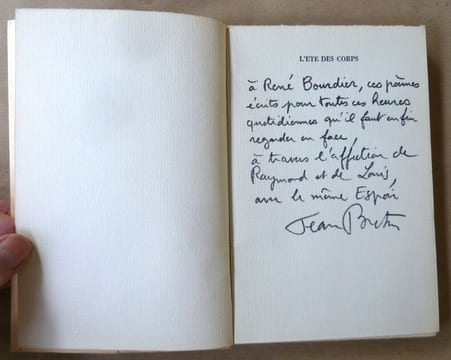 L'ETE DES CORPS
à René Bourdier, ces poèmes
écrits pour toutes ces heures
quotidiennes qu'il faut enfin
regarder en face,
à travers l'affection de
Raymond et de Louis,
avec le même Espoir
Jean Breton